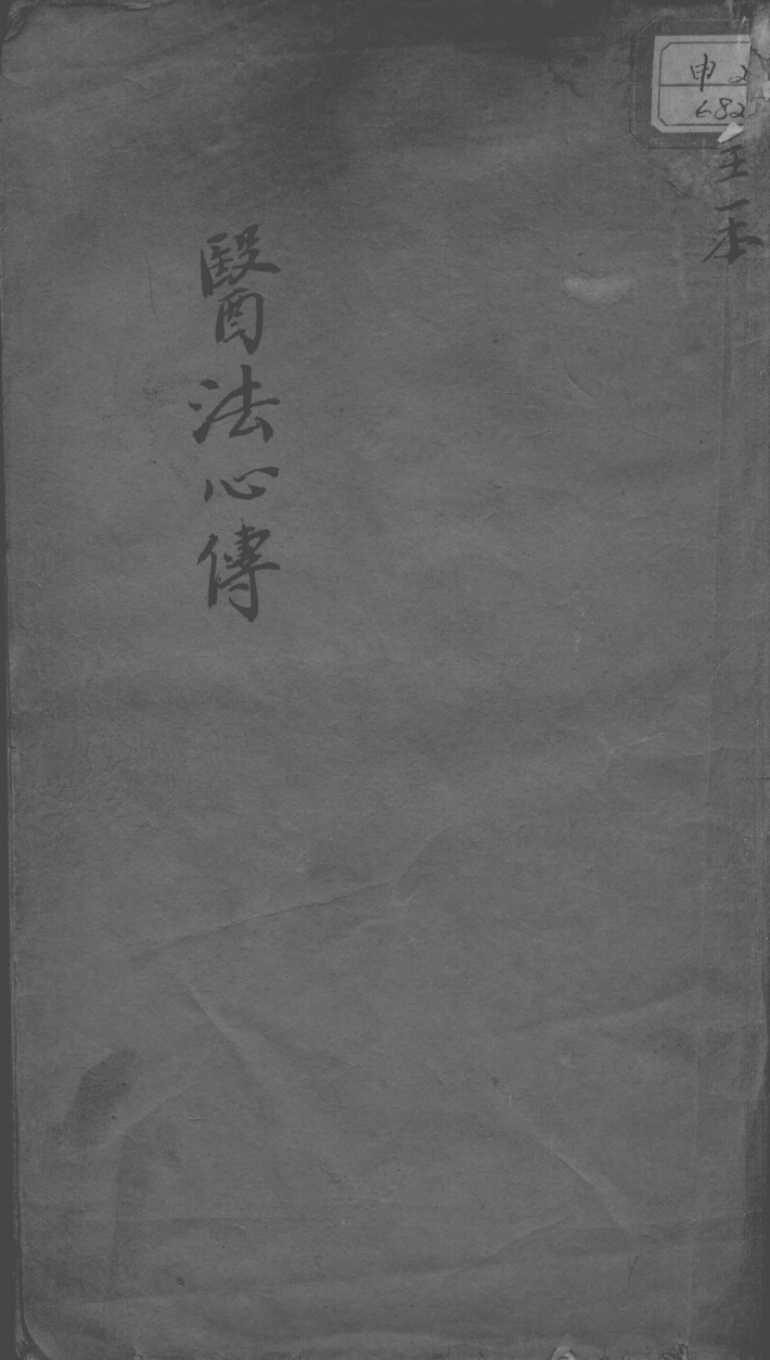 申2
682
全一本
醫法心傳